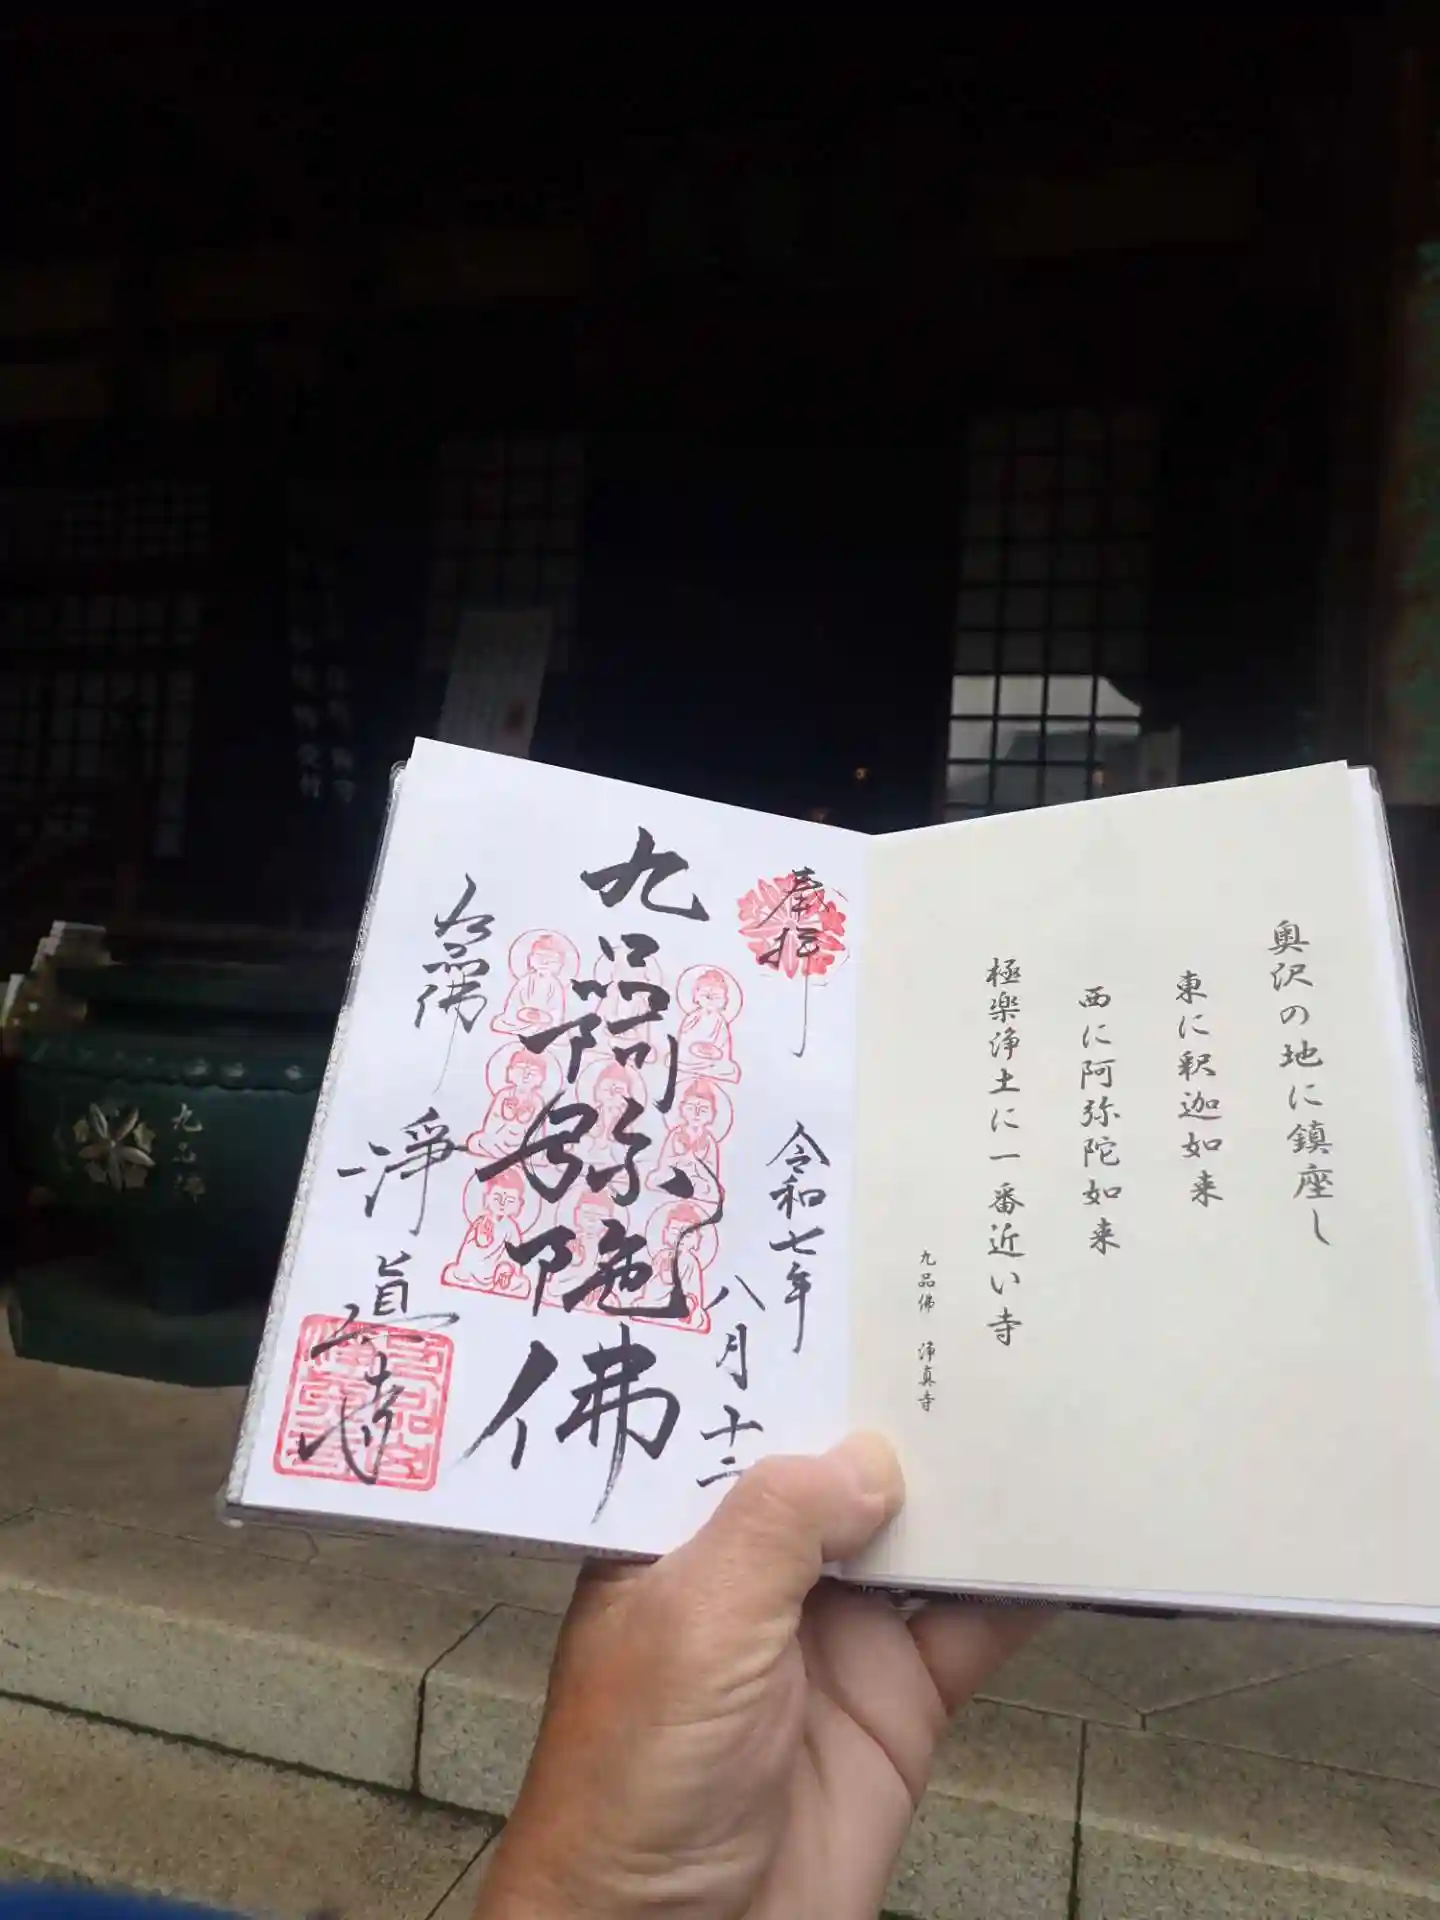 奥沢の地に鎮座し
東に釈迦如来
西に阿弥陀如来
極楽浄土に一番近い寺
九品佛 浄真寺
奉拝
令和七年
八月十二
九品阿弥陀佛
九品佛
淨眞寺
九品佛